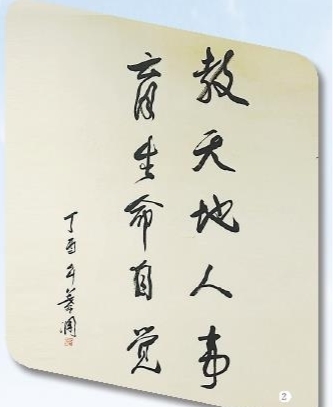 教天地人事
育生命自觉
丁酉年 叶澜
2